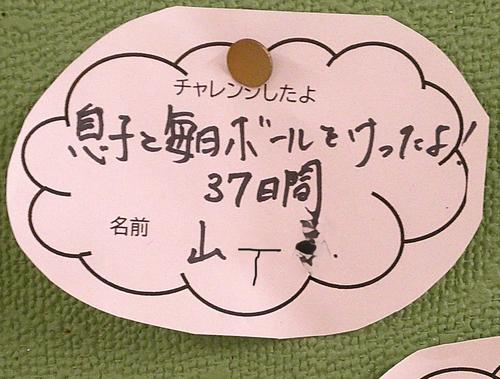 チャレンジしたよ
息子と毎日ボールをけったよ!
37日間
名前
山下